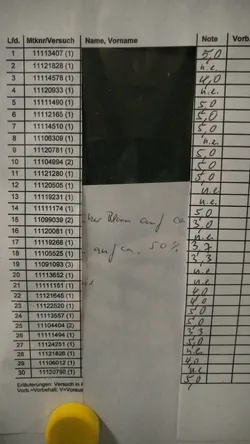 Lfd. Mtknr/Versuch Name, Vorname Note Vorb.
1 11113407 (1) 5,0
2 11121828 (1) n.e.
3 11114578 (1) 4,0
4 11120933 (1) n.e.
5 11111490 (1) 5,0
6 11112165 (1) 5,0
7 11114510 (1) 5,0
8 (1) n.e.
9 11120781 (1) 5,0
10 11104994 (2) 5,0
11 11121280 (1) 5,0
12 11120505 (1) n.e.
13 11119231 (1) n.e.
14 11111174 (1) 5,0
15 11099039 (2) auf ca 3,0
16 11120081 (1) n.e.
17 11119268 (1) auf ca. 50% 3,7
18 11105525 (1) 3,3
19 11091093 (3) n.e.
20 11113652 (1) n.e.
21 11111151 (1) 4,0
22 11121645 (1) 4,0
23 11122520 (1) 5,0
24 11113557 (1) 5,0
25 11104404 (2) 3,3
26 11111494 (1) 5,0
27 11124251 (1) n.e.
28 (1) 4,0
29 11106012 (1) n.e.
30 11120790 (1) 5,0
Erläuterungen: Versuch in
Vorb.=Vorbehalt; V=Voraus